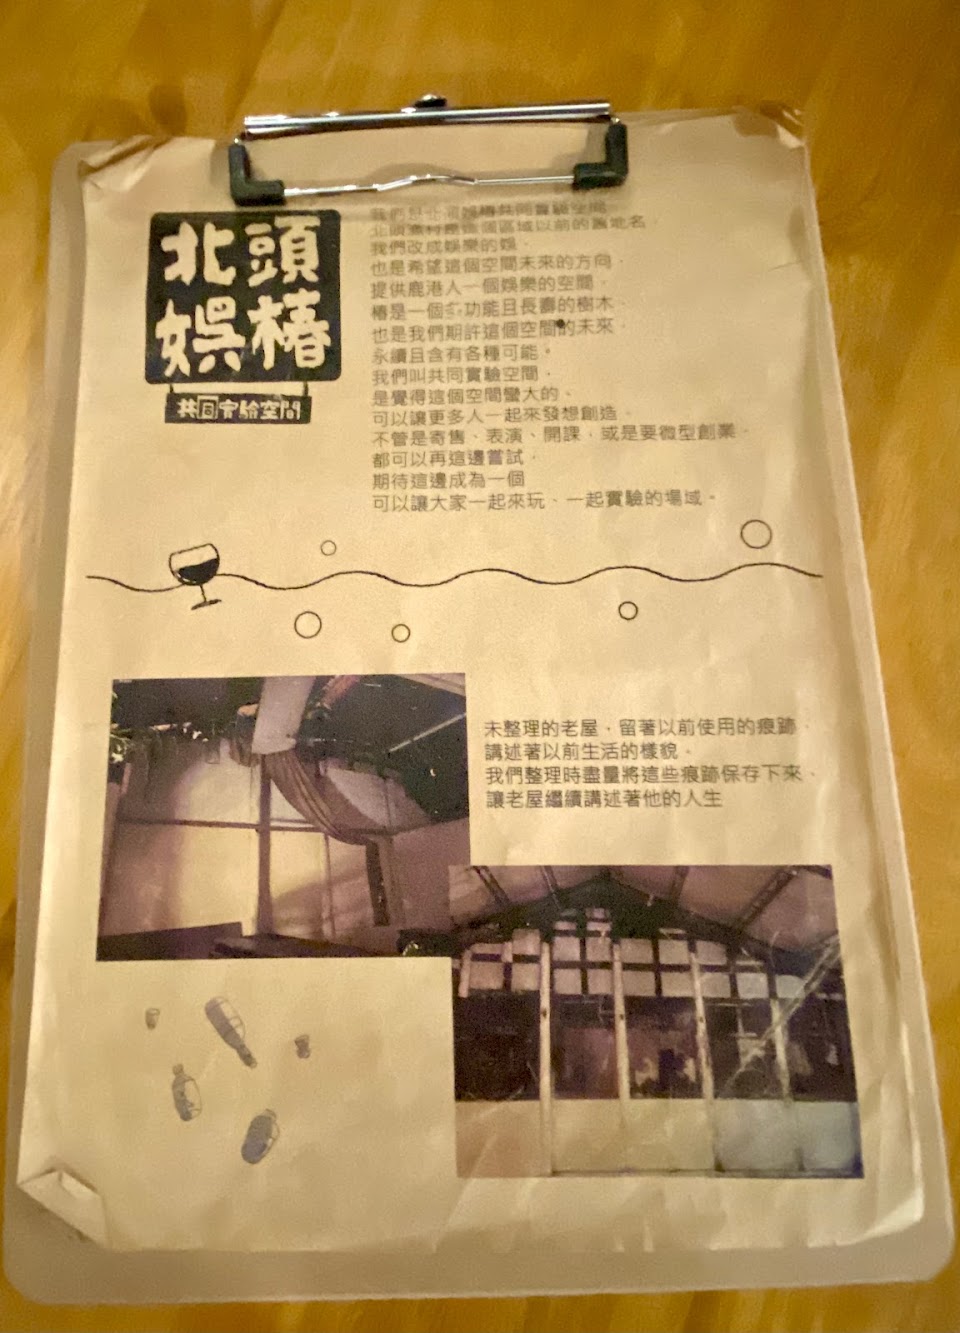 北頭
娛椿
共同實驗空間
我們是北頭娛椿共同實驗空間，
北頭漁村是這個區域以前的舊地名，
我們改成娛樂的娛，
也是希望這個空間未來的方向，
提供鹿港人一個娛樂的空間，
椿是一個多功能且長壽的樹木、
也是我們期許這個空間的未來，
永續且含有各種可能。
我們叫共同實驗空間，
是覺得這個空間蠻大的、
可以讓更多人一起來發想創造，
不管是寄售、表演、開課，或是要微型創業，
都可以再這邊嘗試，
期待這邊成為一個
可以讓大家一起來玩、一起實驗的場域。
未整理的老屋，留著以前使用的痕跡，
講述著以前生活的樣貌，
我們整理時盡量將這些痕跡保存下來、
讓老屋繼續講述著他的人生